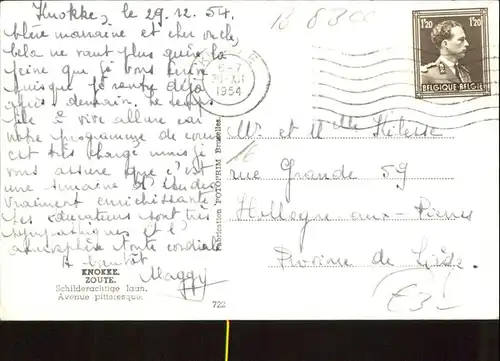 Knokke, le 29.12.54.
18 8300
chère marraine et cher oncle,
cela ne vaut plus guère la
peine que je vous écrive
puisque je rentre déjà
demain. Le temps
file à vive allure car
notre programme de cours
est très chargé mais je
vous assure que c'est
une semaine d'études
vraiment enrichissante.
Les éducateurs sont très
sympathiques et l'
atmosphère toute cordiale
A bientôt
Maggy
KNOKKE
ZOUTE.
Schilderachtige laan.
Avenue pittoresque.
722
Fabrication FOTOPRIM Bruxelles
1954
1F20 1F20
BELGIQUE·BELGIE
Mr et Mlle
rue Grande 59
Hollogne-aux-Pierres
Province de Liège.
€3-